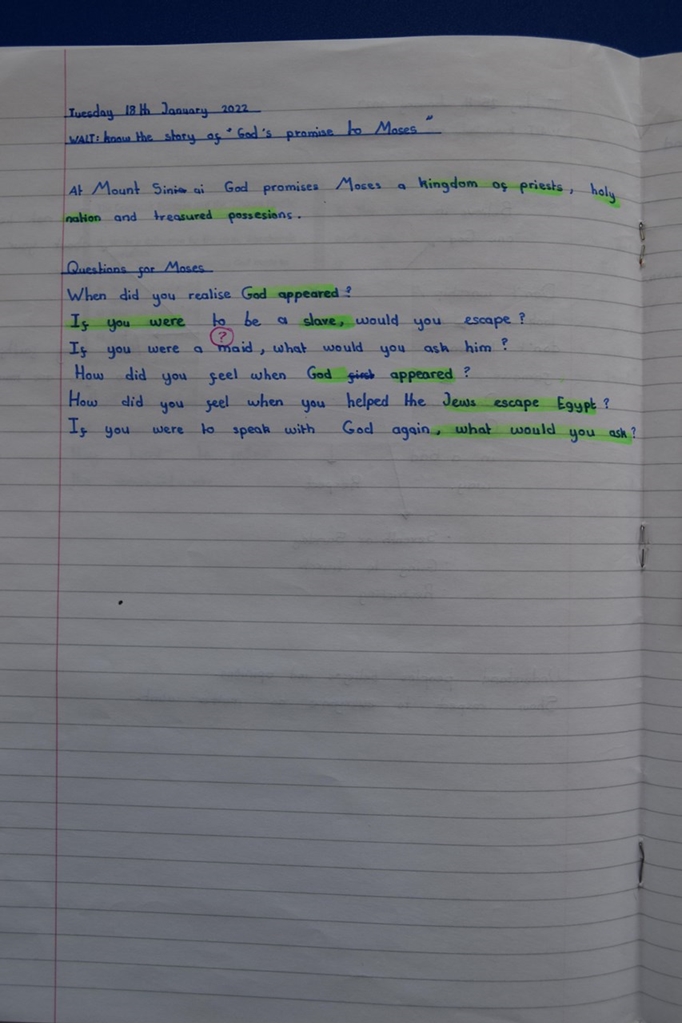 Tuesday 18th January 2022
WALT: know the story of "God's promise to Moses"
At Mount Sinie ai God promises Moses a kingdom of priests, holy
nation and treasured possesions.
Questions for Moses
When did you realise God appeared?
If you were to be a slave, would you escape?
?
If you were a maid, what would you ask him?
How did you feel when God first appeared?
How did you feel when you helped the Jews escape Egypt?
If you were to speak with God again, what would you ask?